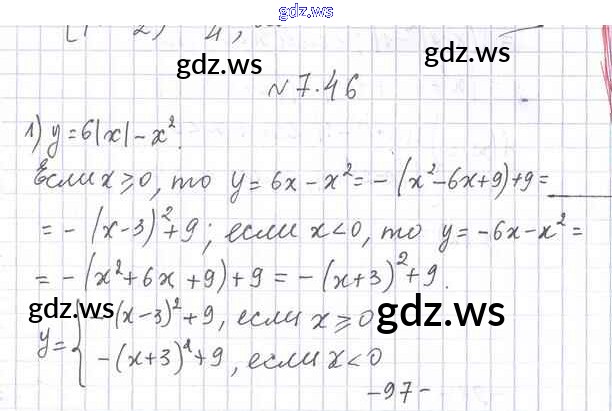 gdz.ws
gdz.ws gdz.ws
№ 7.46
1) y = 6|x| - x².
Если x ≥ 0, то y = 6x - x² = - (x² - 6x + 9) + 9 =
= - (x - 3)² + 9; если x < 0, то y = -6x - x² =
= - (x² + 6x + 9) + 9 = - (x + 3)² + 9.
gdz.ws gdz.ws
y = { -(x - 3)² + 9, если x ≥ 0
-(x + 3)² + 9, если x < 0
- 97 -